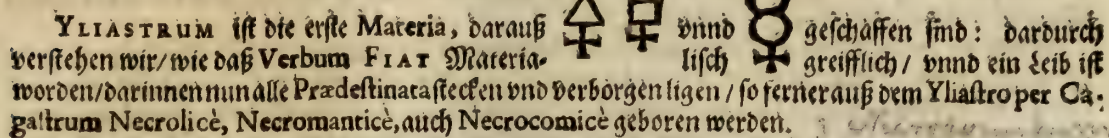 YLIASTRUM iſt die erſte Materia, darauß 🜍 🜔 vnnd ☿ geſchaffen ſind: dardurch
verſtehen wir/ wie daß Verbum FIAT Materia- liſch greifflich/ vnnd ein Leib iſt
worden/ darinnen nun alle Prædeſtinata ſtecken vnd verborgen ligen/ ſo ferner auß dem Yliaſtro per Ca-
gaſtrum Necrolicè, Necromanticè, auch Necrocomicè geboren werden.